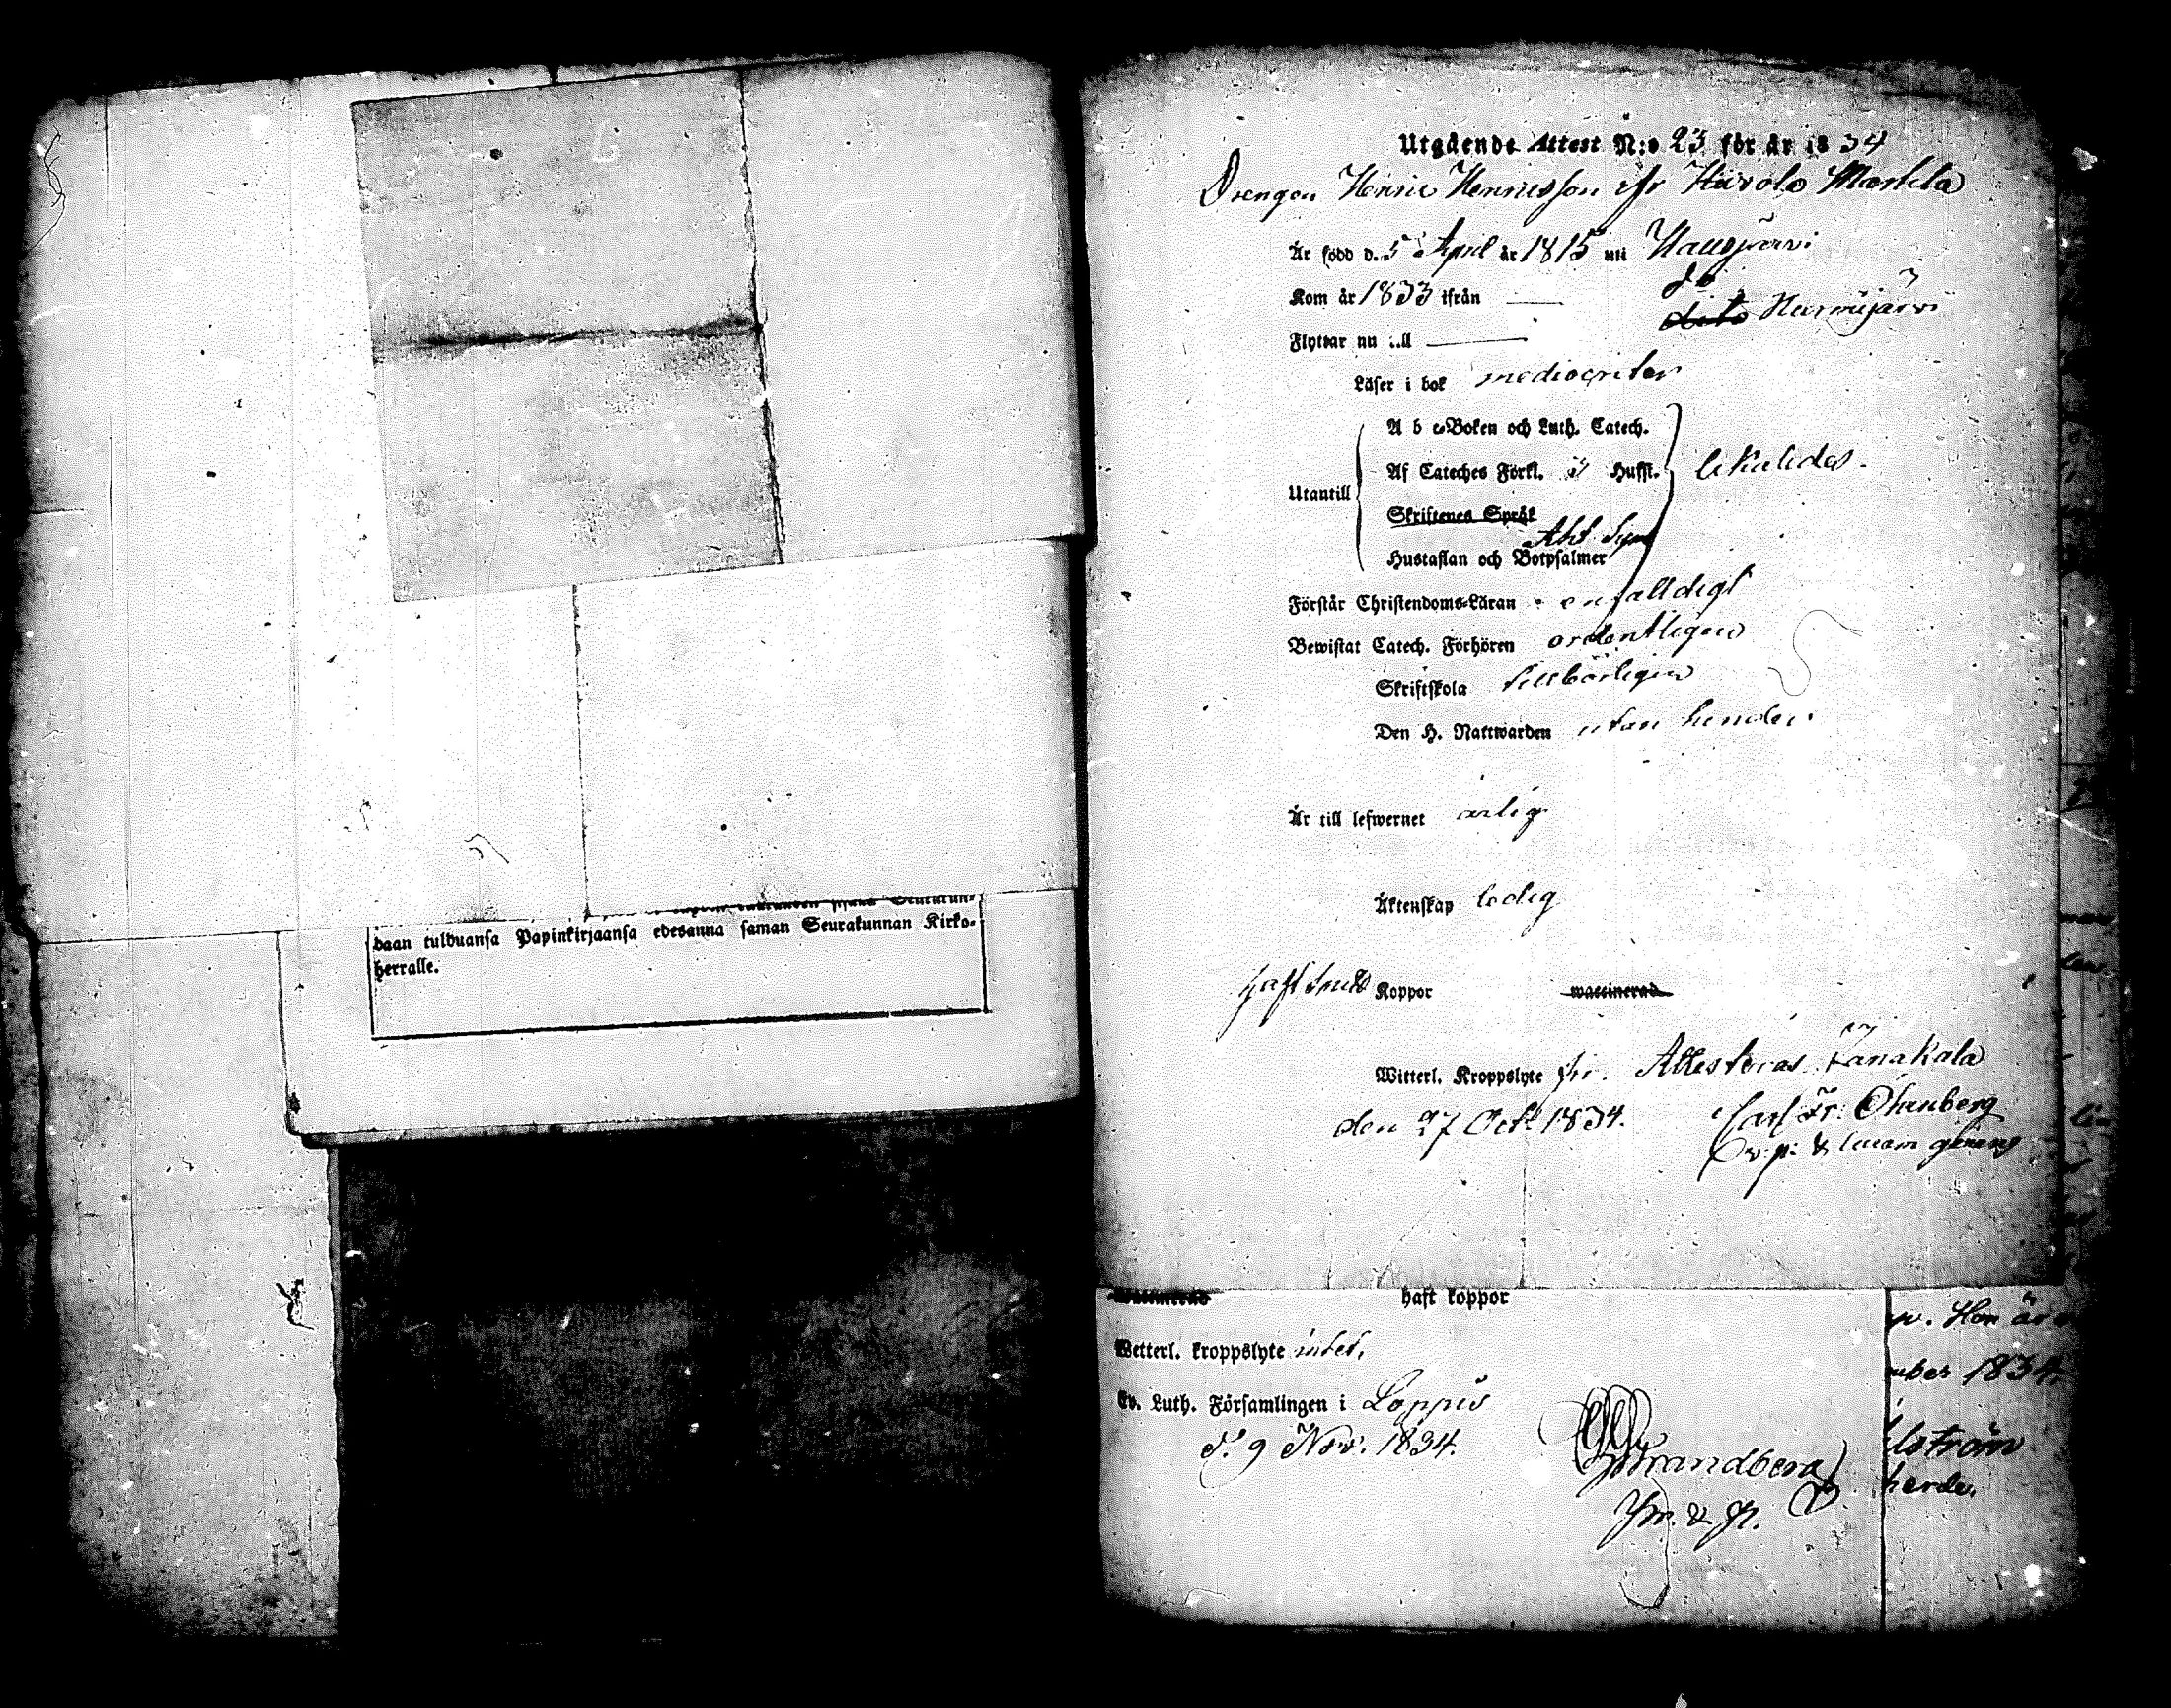 daan tulduansa Papinkirjaansa edesanna saman Seurakunnan Kirko-
herralle.
Utgående Attest N:o 23 för år 1834
Drengen Henric Henricsson ifr Mäskelä
Är född d. 5 April år 1815 uti Hausjärvi
Kom år 1833 ifrån — do
Flyttar nu till — dito Nurmijärvi
Läser i bok mediocriter
A b c-Boken och Luth. Catech.
Af Cateches Förkl. 3 Hufst. likaledes.
Utantill
Skriftenes Språk
Ath. Sym
Hustaflan och Botpsalmer
Förstår Christendoms-Läran enfalldigt
Bewistat Catech. Förhören ordentligen
Skriftskola tillbörligen
Den H. Nattwarden utan hinder
Är till lefwernet ärlig
Äktenskap ledig
haft Koppor waccinerad
Witterl. Kroppslyte fri. Attesteras Janakala
den 27 Oct. 1834. Carl Fr. Öhrnberg
v. p.
waccinerad haft koppor
Wetterl. kroppslyte intet,
Ev. Luth. Församlingen i Loppis
d. 9 Nov. 1834. Strandberg
. Hon är
mber 1834.
lström
herde.